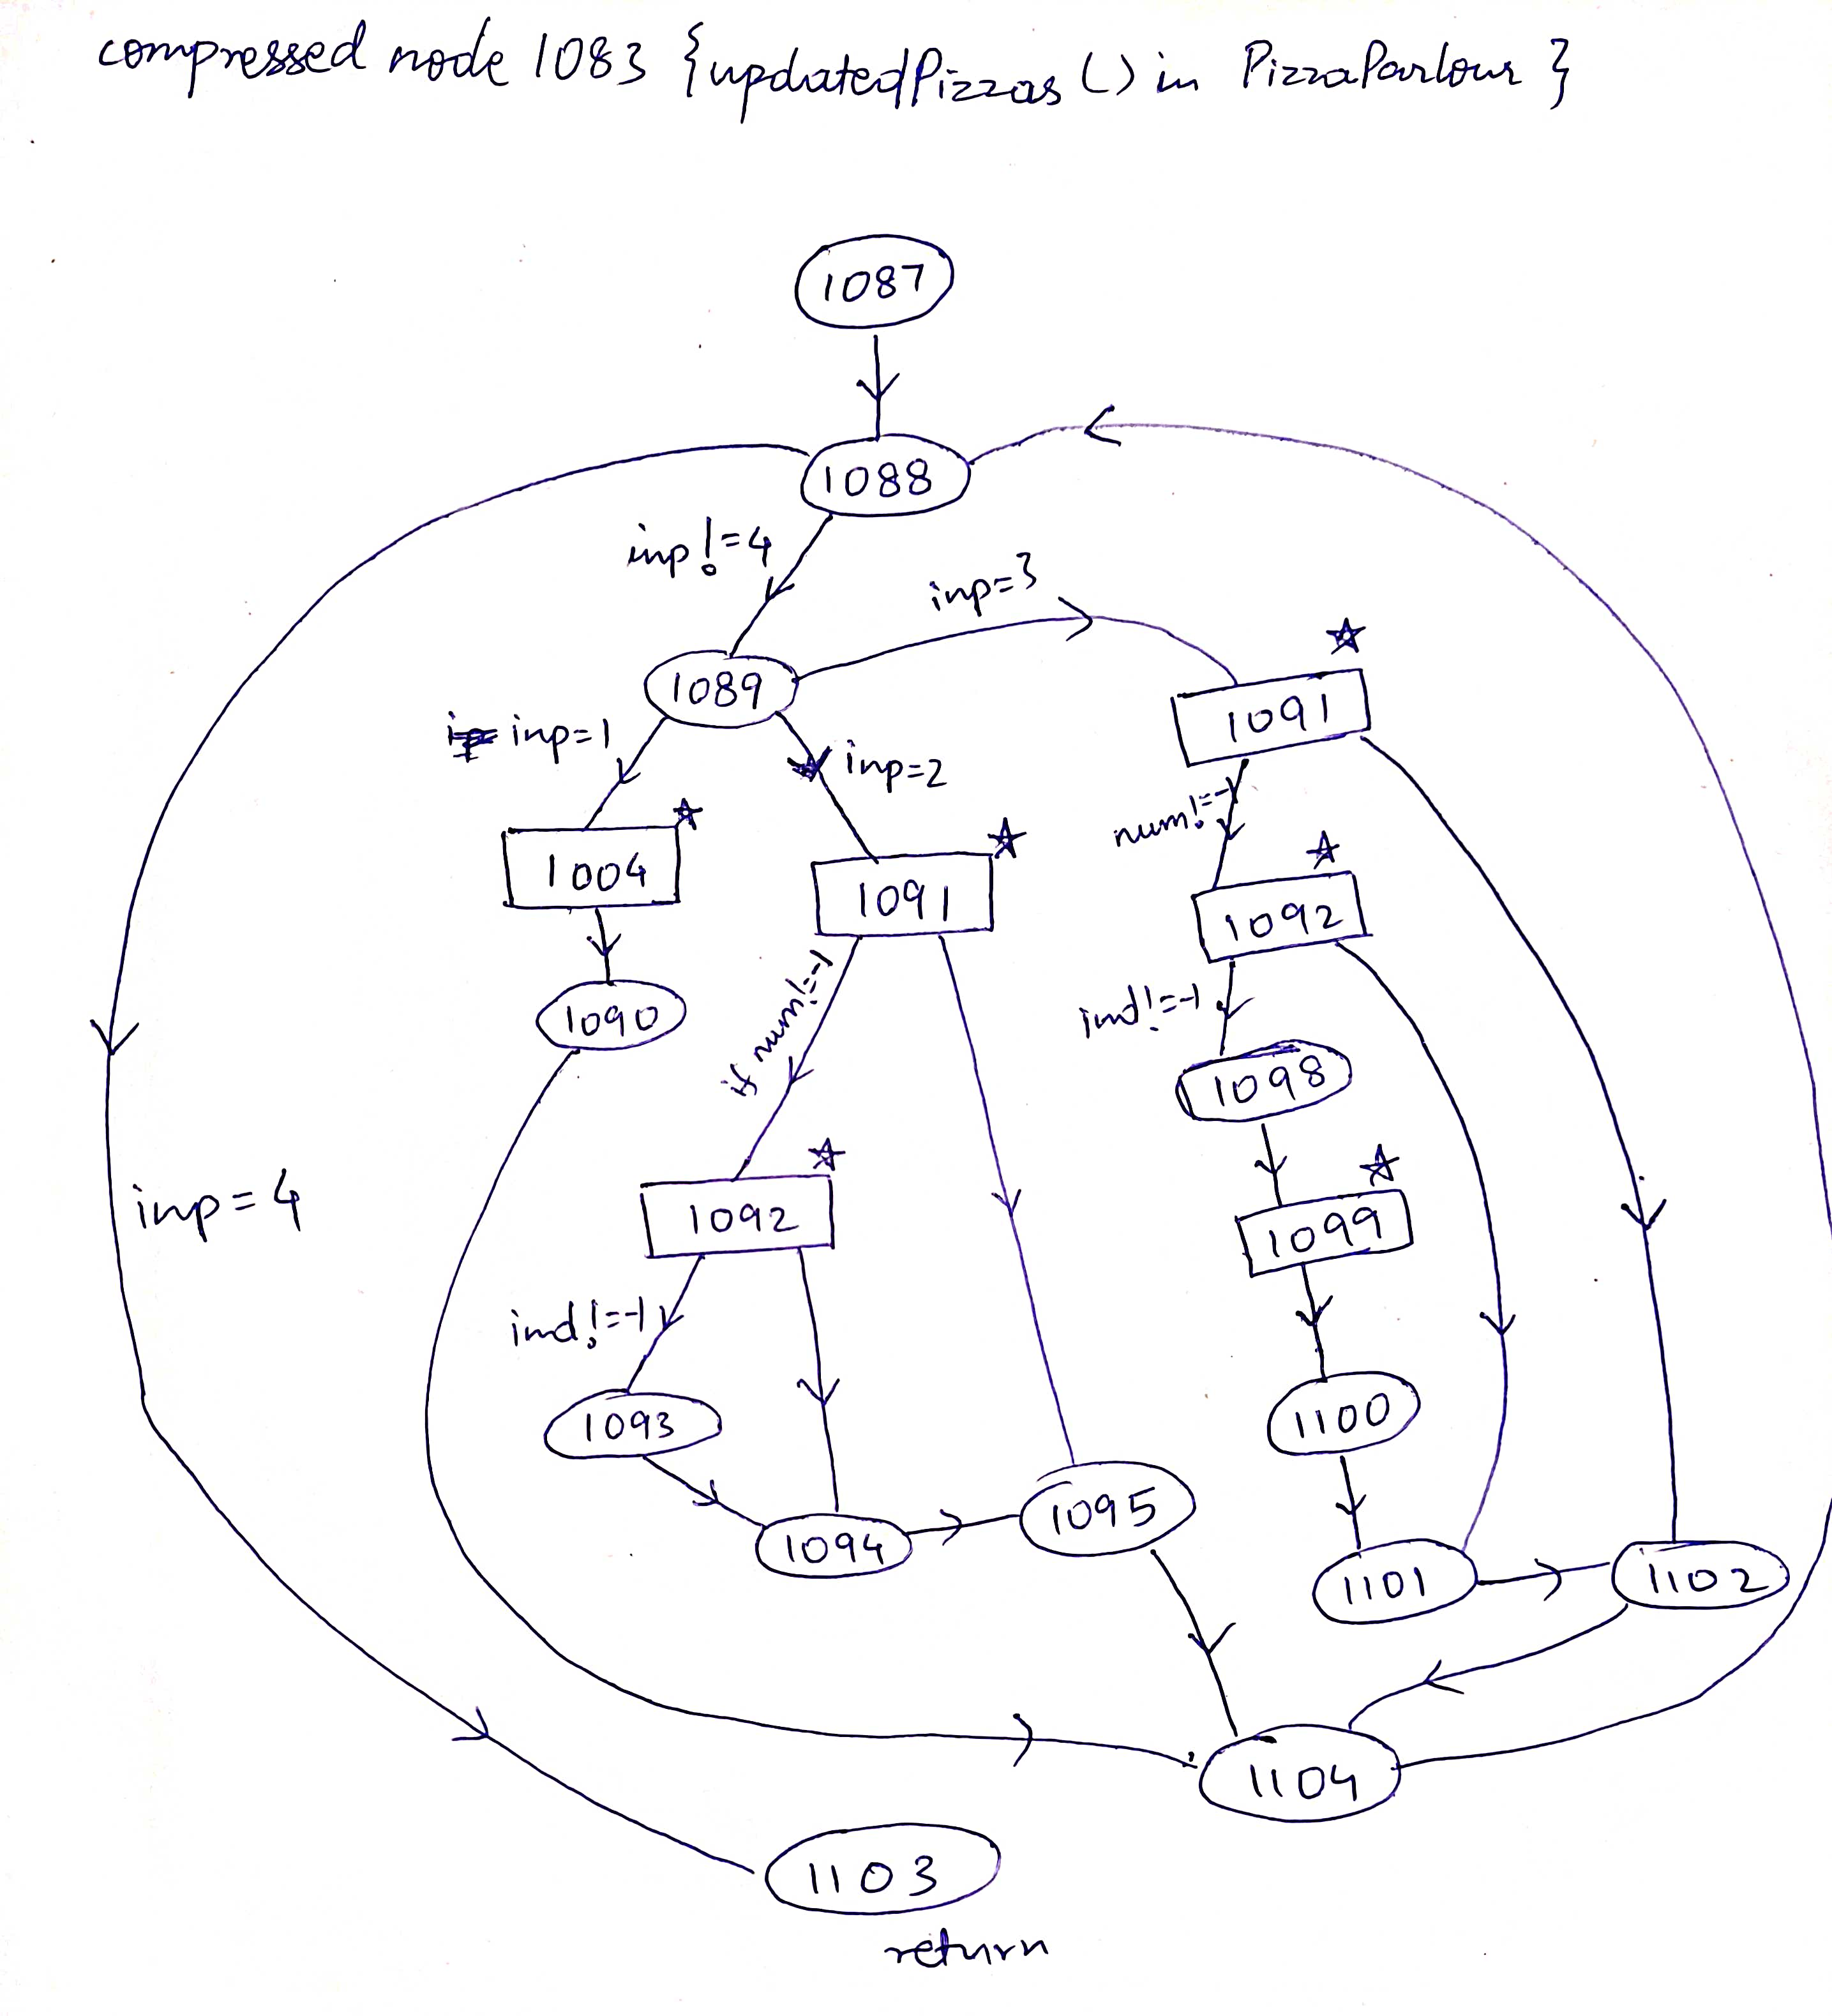 compressed node 1083 {updatedPizzas () in PizzaParlour }
1087
1088
inp!=4
inp=3
1089
1091
inp=1
inp=2
num!=-1
1004
1091
1092
ind!=-1
1090
if num!=-1
1098
inp=4
1092
1099
ind!=-1
1093
1100
1094
1095
1101
1102
1104
1103
return